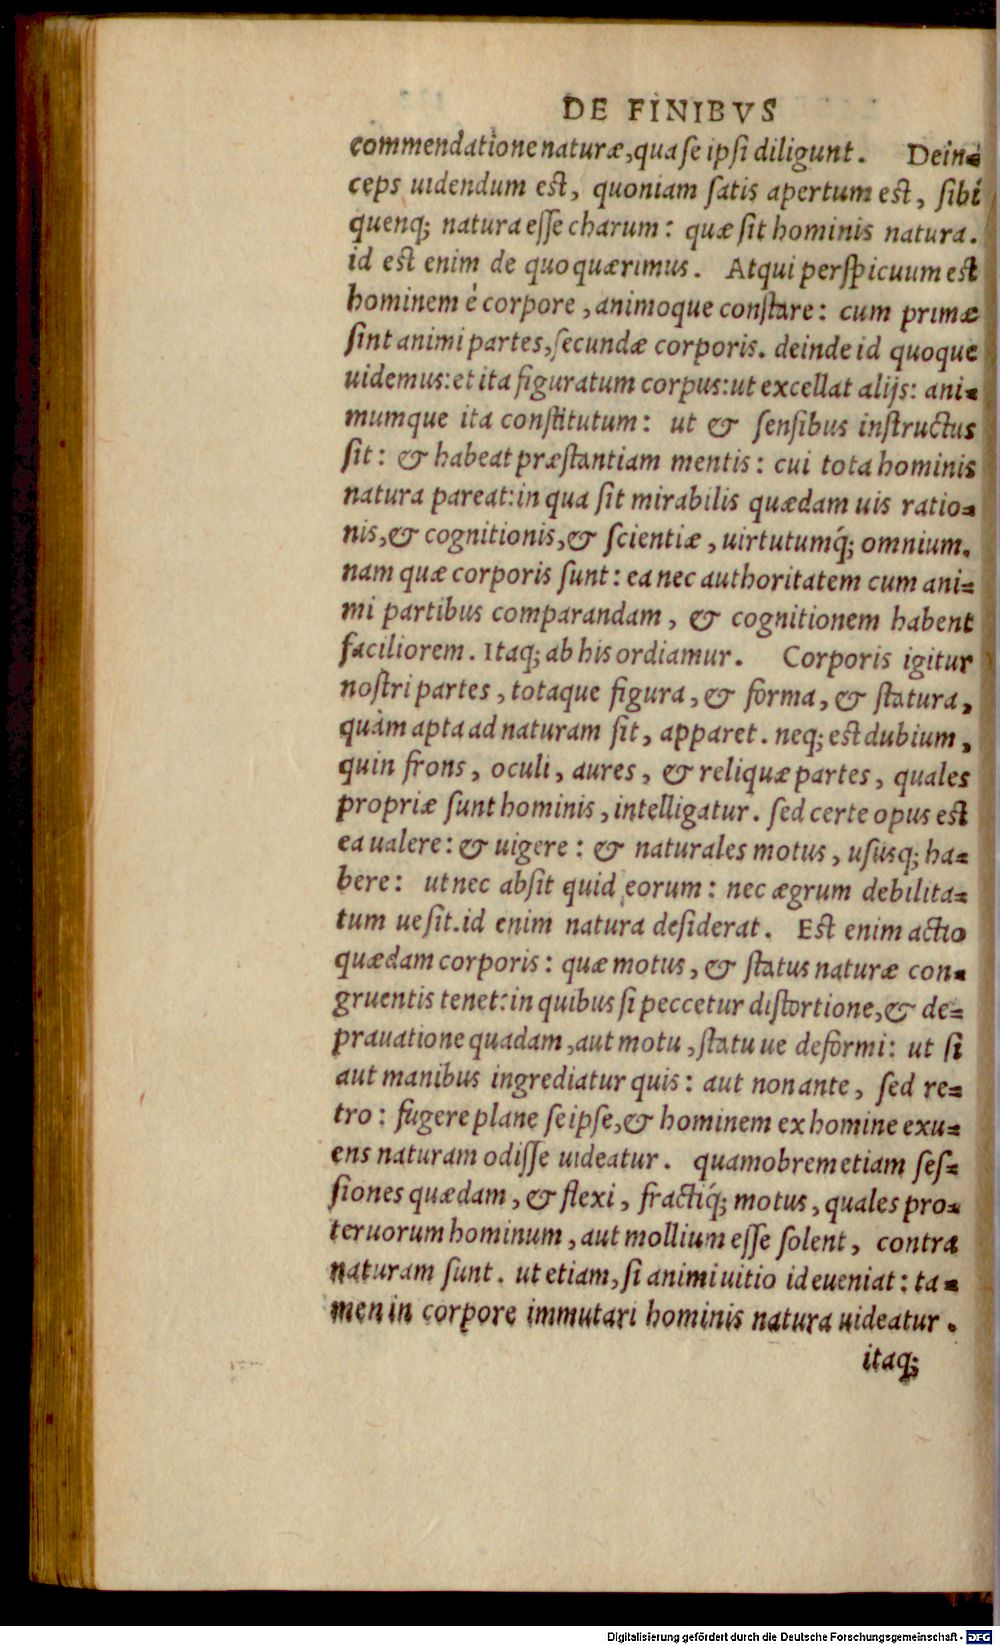 DE FINIBVS
commendatione naturæ, qua se ipsi diligunt. Dein=
ceps uidendum est, quoniam satis apertum est, sibi
quenq; natura esse charum: quæ sit hominis natura.
id est enim de quo quærimus. Atqui perspicuum est
hominem é corpore, animoque constare: cum primæ
sint animi partes, secundæ corporis. deinde id quoque
uidemus: et ita figuratum corpus: ut excellat alijs: ani=
mumque ita constitutum: ut & sensibus instructus
sit: & habeat præstantiam mentis: cui tota hominis
natura pareat: in qua sit mirabilis quædam uis ratio=
nis, & cognitionis, & scientiæ, uirtutumq́; omnium.
nam quæ corporis sunt: ea nec authoritatem cum ani=
mi partibus comparandam, & cognitionem habent
faciliorem. Itaq; ab his ordiamur. Corporis igitur
nostri partes, totaque figura, & forma, & statura,
quàm apta ad naturam sit, apparet. neq; est dubium,
quin frons, oculi, aures, & reliquæ partes, quales
propriæ sunt hominis, intelligatur. sed certe opus est
ea ualere: & uigere: & naturales motus, ususq; ha=
bere: ut nec absit quid eorum: nec ægrum debilita=
tum ue sit. id enim natura desiderat. Est enim actio
quædam corporis: quæ motus, & status naturæ con=
gruentis tenet: in quibus si peccetur distortione, & de=
prauatione quadam, aut motu, statu ue deformi: ut si
aut manibus ingrediatur quis: aut non ante, sed re=
tro: fugere plane se ipse, & hominem ex homine exu=
ens naturam odisse uideatur. quamobrem etiam ses=
siones quædam, & flexi, fractiq́; motus, quales pro=
teruorum hominum, aut mollium esse solent, contra
naturam sunt. ut etiam, si animi uitio id eueniat: ta=
men in corpore immutari hominis natura uideatur.
itaq;
Digitalisierung gefördert durch die Deutsche Forschungsgemeinschaft - DFG